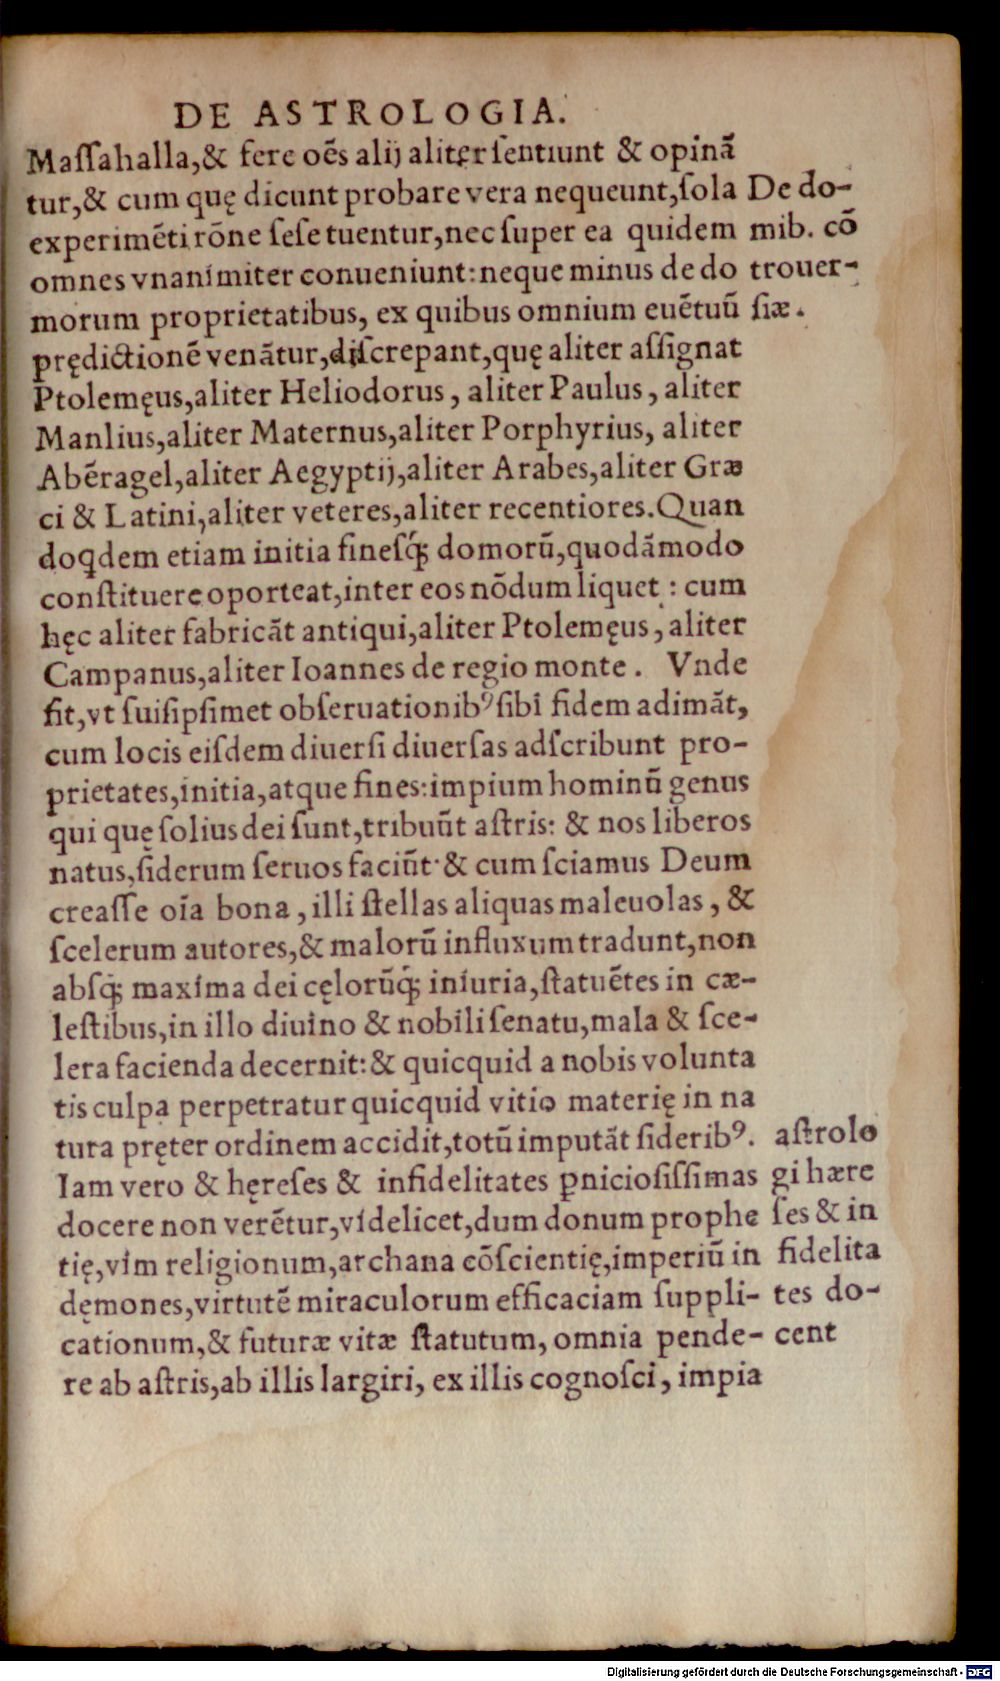 DE ASTROLOGIA.
Maſſahalla,& fere oẽs alij aliter ſentiunt & opinã
tur,& cum quę dicunt probare vera nequeunt,ſola
experimẽti rõne ſeſe tuentur,nec ſuper ea quidem
omnes vnanimiter conueniunt:neque minus de do
morum proprietatibus, ex quibus omnium euẽtuũ
prędictionẽ venãtur,diſcrepant,quę aliter aſſignat
Ptolemęus,aliter Heliodorus, aliter Paulus, aliter
Manlius,aliter Maternus,aliter Porphyrius, aliter
Abẽragel,aliter Aegyptij,aliter Arabes,aliter Græ
ci & Latini,aliter veteres,aliter recentiores.Quan
doqdem etiam initia fineſq́; domorũ,quodãmodo
conſtituere oporteat,inter eos nõdum liquet : cum
hęc aliter fabricãt antiqui,aliter Ptolemęus, aliter
Campanus,aliter Ioannes de regio monte. Vnde
fit,vt ſuiſipſimet obſeruationibꝰ ſibi fidem adimãt,
cum locis eiſdem diuerſi diuerſas adſcribunt pro-
prietates,initia,atque fines:impium hominũ genus
qui quę ſolius dei ſunt,tribuũt aſtris: & nos liberos
natus,ſiderum ſeruos faciũt & cum ſciamus Deum
creaſſe oĩa bona, illi ſtellas aliquas maleuolas, &
ſcelerum autores,& malorũ influxum tradunt,non
abſq́; maxima dei cęlorũq́; iniuria,ſtatuẽtes in cæ-
leſtibus,in illo diuino & nobili ſenatu,mala & ſce-
lera facienda decernit:& quicquid a nobis volunta
tis culpa perpetratur quicquid vitio materię in na
tura pręter ordinem accidit,totũ imputãt ſideribꝰ.
Iam vero & hęreſes & infidelitates ꝑnicioſiſſimas
docere non verẽtur,videlicet,dum donum prophe
tię,vim religionum,archana cõſcientię,imperiũ in
dęmones,virtutẽ miraculorum efficaciam ſuppli-
cationum,& futuræ vitæ ſtatutum, omnia pende-
re ab aſtris,ab illis largiri, ex illis cognoſci, impia
De do-
mib. cõ
trouer-
ſiæ.
aſtrolo
gi hære
ſes & in
fidelita
tes do-
cent
Digitalisierung gefördert durch die Deutsche Forschungsgemeinschaft - DFG